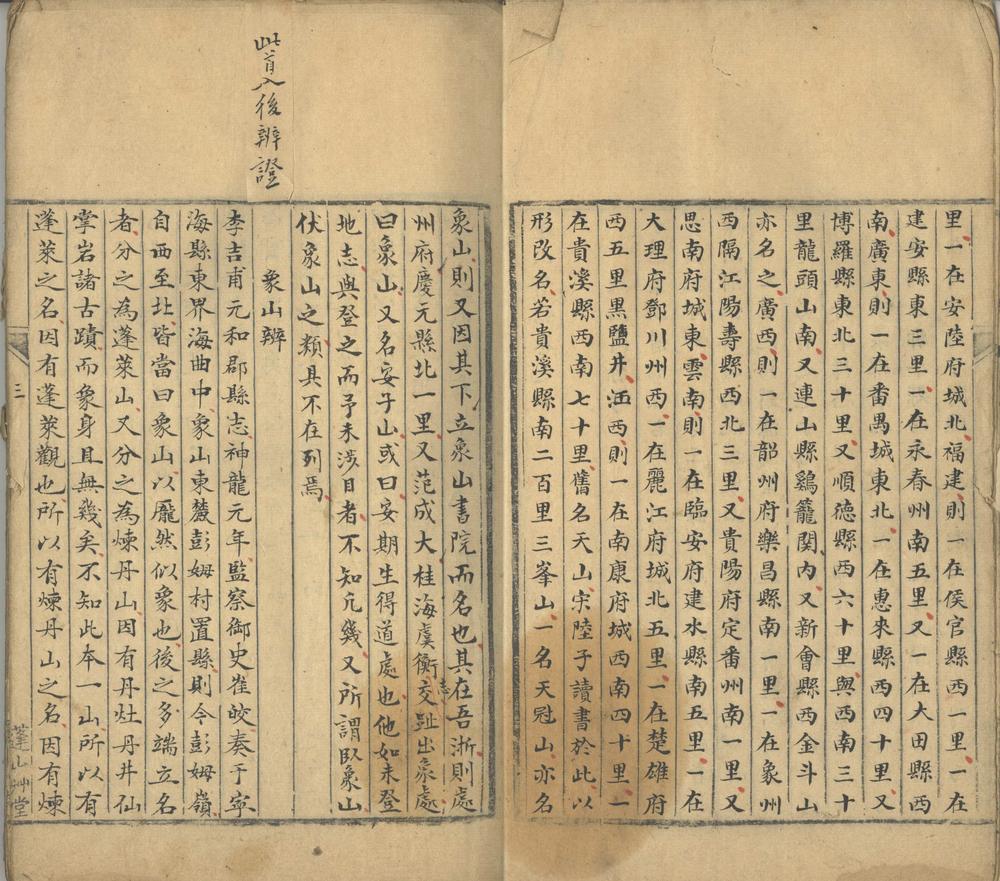 里一在安陸府城北福建則一在侯官縣西一里一在
建安縣東三里一在永春州南五里又一在大田縣西
南廣東則一在番禺城東北一在惠來縣西四十里又
博羅縣東北三十里又順德縣西六十里與西南三十
里龍頭山南又連山縣鷄籠関内又新會縣西金斗山
亦名之廣西則一在韶州府樂昌縣南一里一在象州
西隔江陽壽縣西北三里又貴陽府定番州南一里又
思南府城東雲南則一在臨安府建水縣南五里一在
大理府鄧川州西一在麗江府城北五里一在楚雄府
西五里黒鹽井江西則一在南康府城西南四十里一
在貴溪縣西南七十里舊名天山宋陸子讀書於此以
形改名若貴溪縣南二百里三峯山一名天冠山亦名
此首入後辨證
象山則又因其下立象山書院而名也其在吾浙則處
州府慶元縣北一里又范成大桂海虞衡志交趾出象處
曰象山又名安子山或曰安期生得道處也他如未登
地志與登之而予未涉目者不知凢幾又所謂臥象山
伏象山之類具不在列焉
象山辨
李吉甫元和郡縣志神龍元年監察御史崔皎奏于寜
海縣東界海曲中象山東麓彭姆村置縣則今彭姆嶺
自西至北皆當曰象山以厖然似象也後之多端立名
者分之為蓬萊山又分之為煉丹山因有丹灶丹井仙
掌岩諸古蹟而象身且無幾矣不知此本一山所以有
蓬萊之名因有蓬萊觀也所以有煉丹山之名因有煉
三
蓬山艸堂